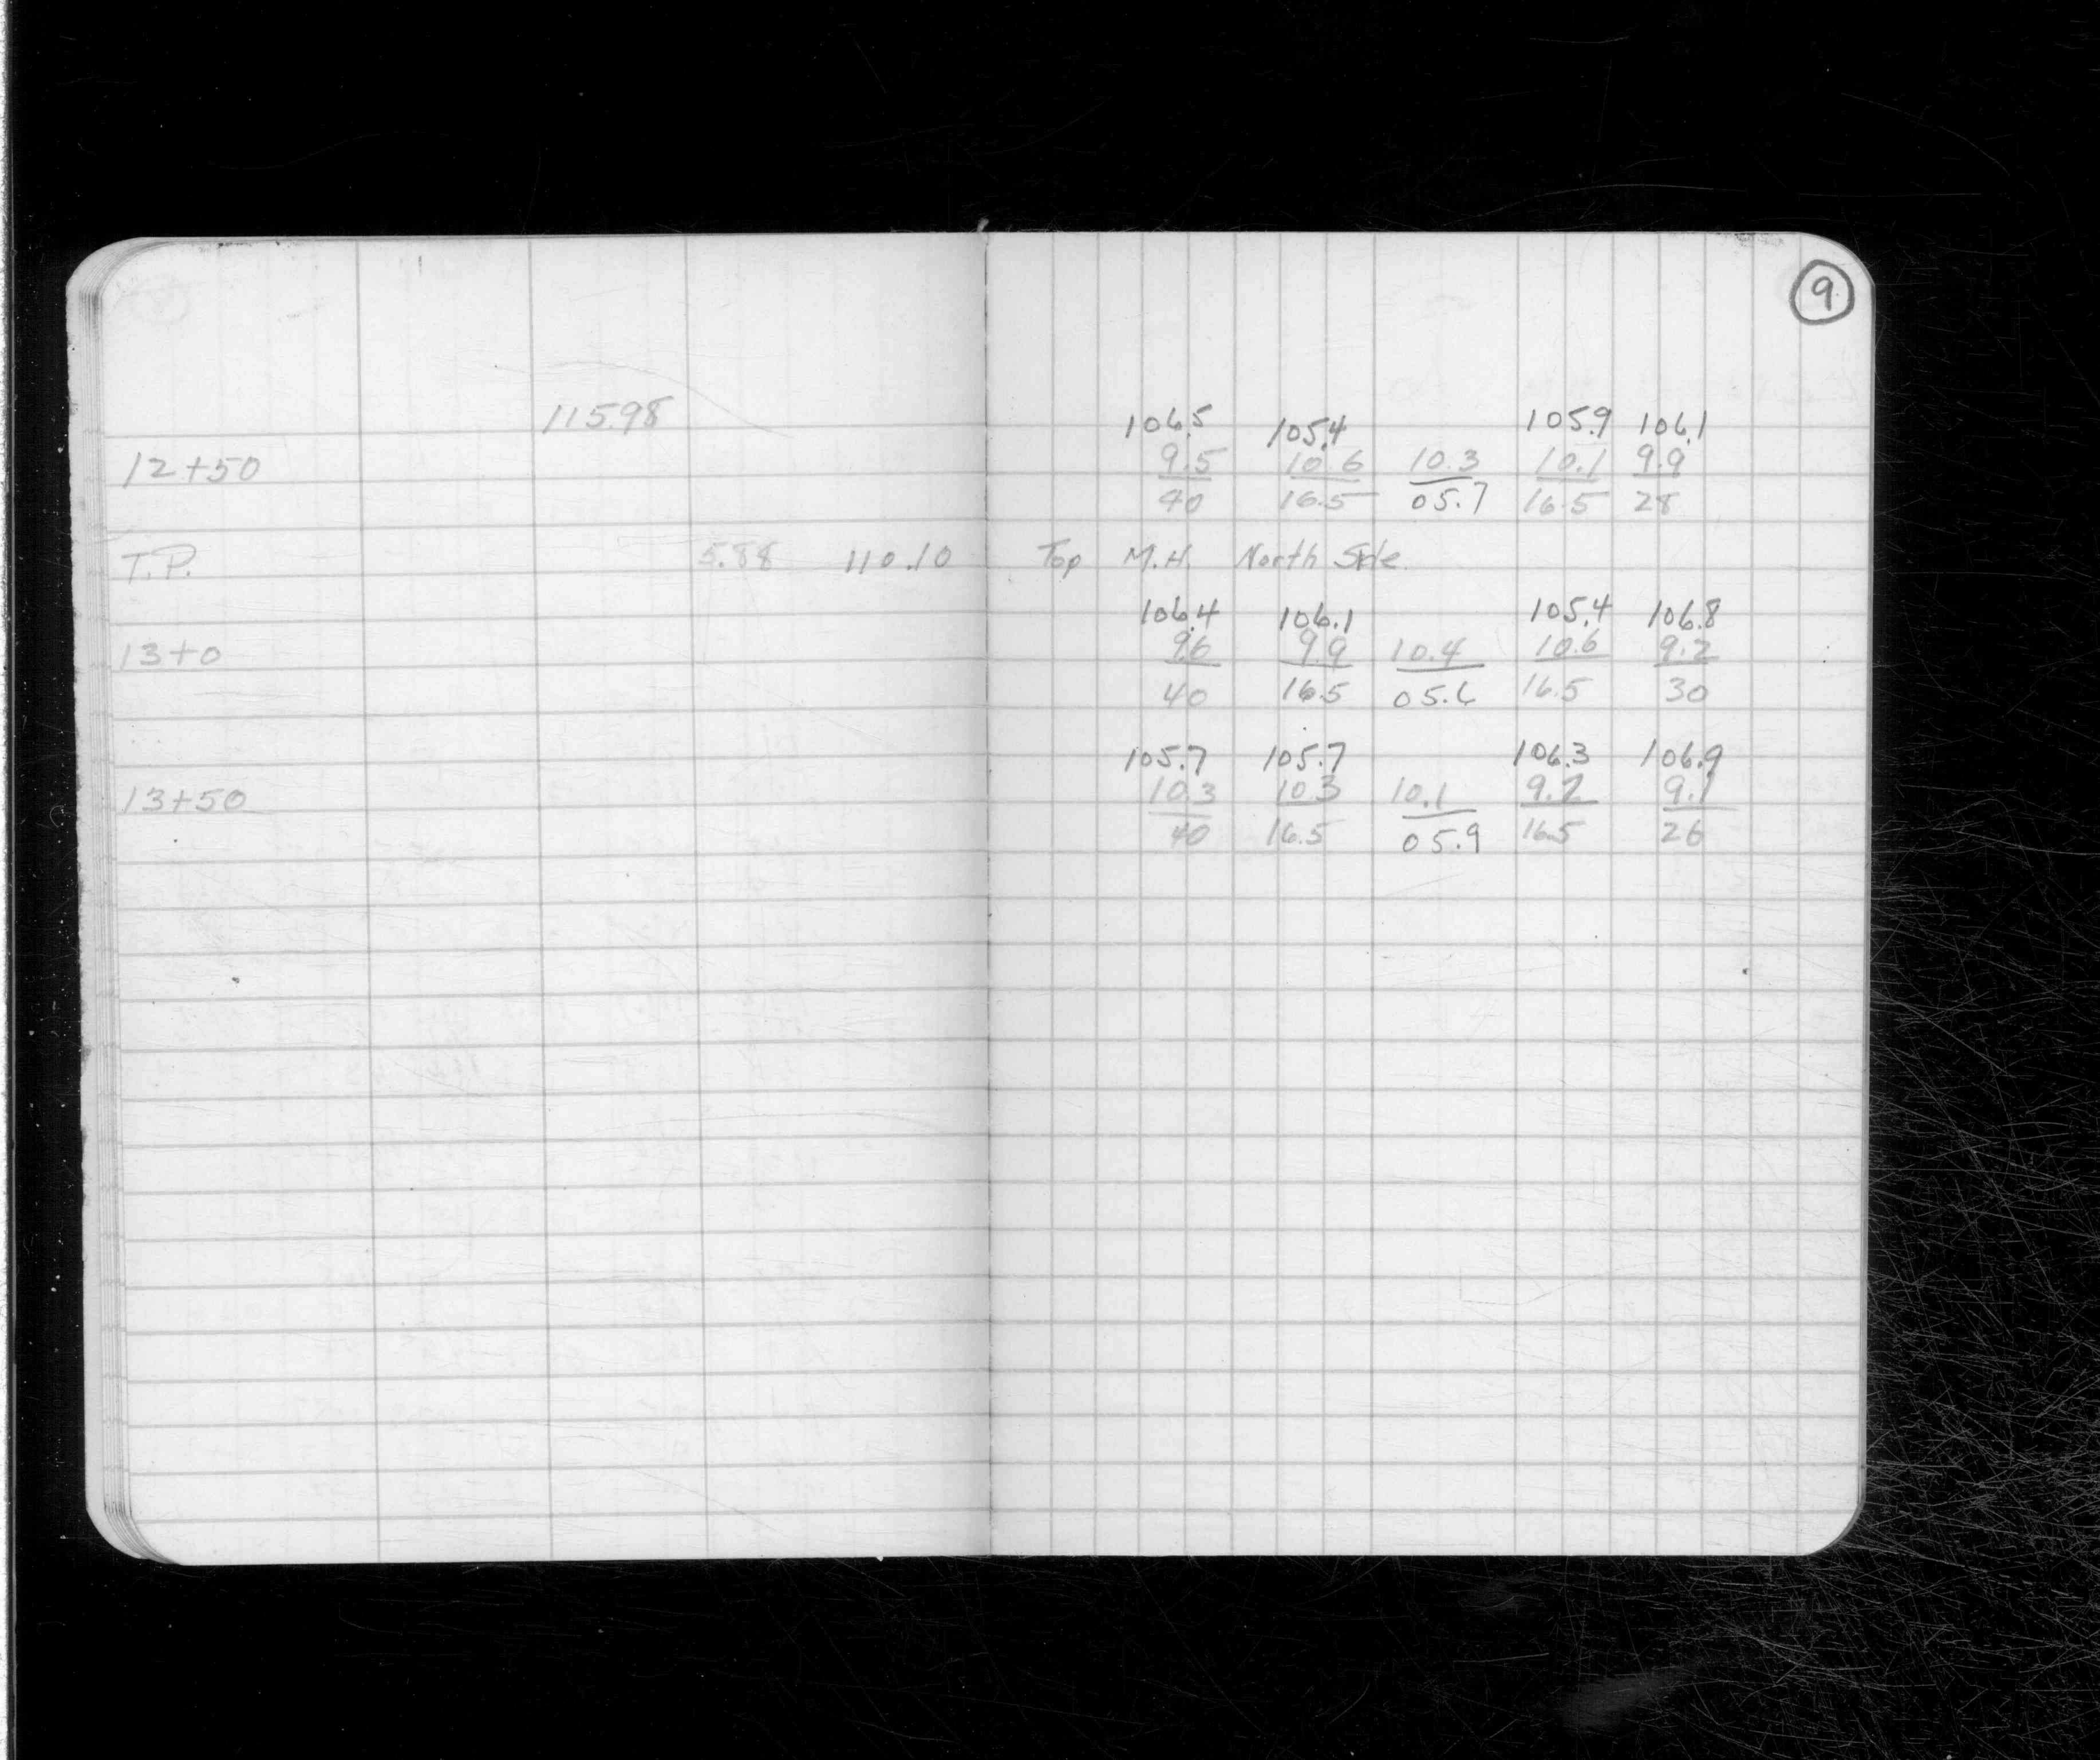 9
115.98
106.5 105.4 105.9 106.1
12+50 9.5 10.6 10.3 10.1 9.9
40 16.5 05.7 16.5 28
T.P. 5.88 110.10 Top M.H. North Side
106.4 106.1 105.4 106.8
13+0 9.6 9.9 10.4 10.6 9.2
40 16.5 05.6 16.5 30
105.7 105.7 106.3 106.9
13+50 10.3 10.3 10.1 9.7 9.1
40 16.5 05.9 16.5 26